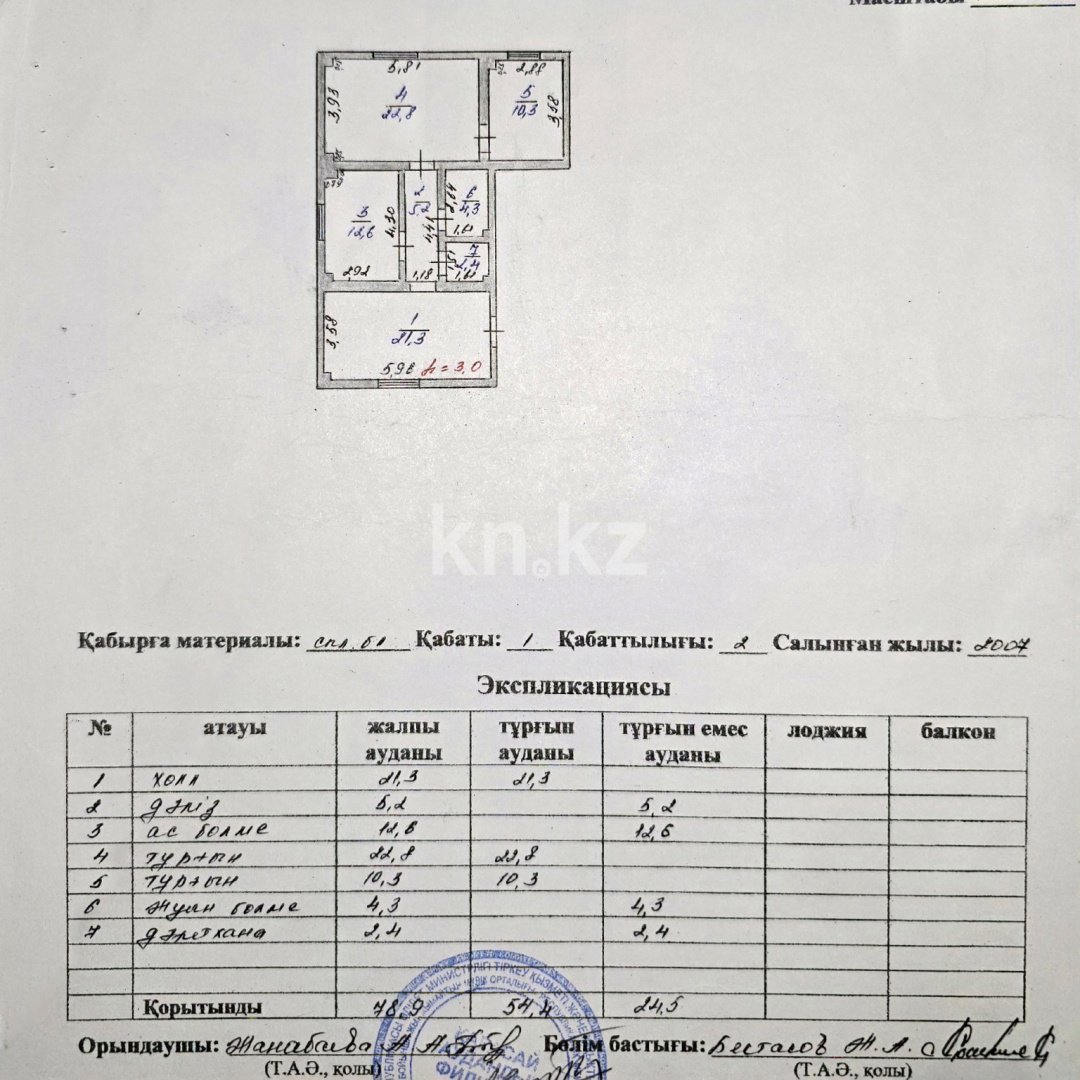 Масштабы
5,81
2,88
3,93
4
22,8
5
10,3
3,58
2,79
3
12,6
4,30
2
5,2
4,41
2,64
6
4,3
1,61
7
2,4
1,51
1,61
2,92
1,18
3,58
1
21,3
5,96 h = 3,0
kn.kz
Қабырға материалы: спл. бл Қабаты: 1 Қабаттылығы: 2 Салынған жылы: 2007
Экспликациясы
№ атауы жалпы ауданы тұрғын ауданы тұрғын емес ауданы лоджия балкон
1 холл 21,3 21,3
2 дәліз 5,2 5,2
3 ас бөлме 12,6 12,6
4 тұрғын 22,8 22,8
5 тұрғын 10,3 10,3
6 жуын бөлме 4,3 4,3
7 дәретхана 2,4 2,4
Қорытынды 78,9 54,4 24,5
Орындаушы: Жанабаева А. Бөлім бастығы: Бестасов Ж. А.
(Т.А.Ә., қолы) (Т.А.Ә., қолы)